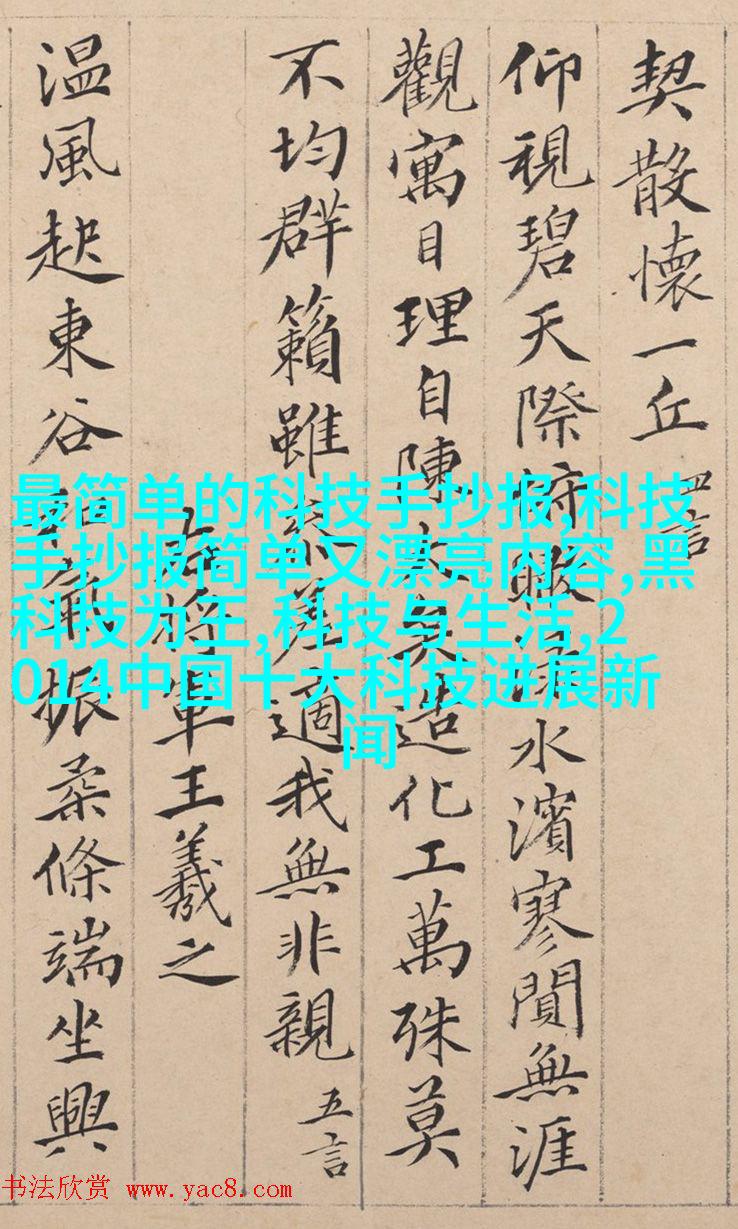 契散懷一丘 四言
仰視碧天際俯瞰淥水濱寥閴無涯
觀寓目理自陳大矣造化工萬殊莫
不均群籟雖參差適我無非親 五言
右將軍王羲之
温風起東谷和氣振柔條端坐興
最简单的科技手抄报,科技
手抄报简单又漂亮内容,黑
科技为王,科技与生活,2
014中国十大科技进展新
闻
书法欣赏 www.yac8.com